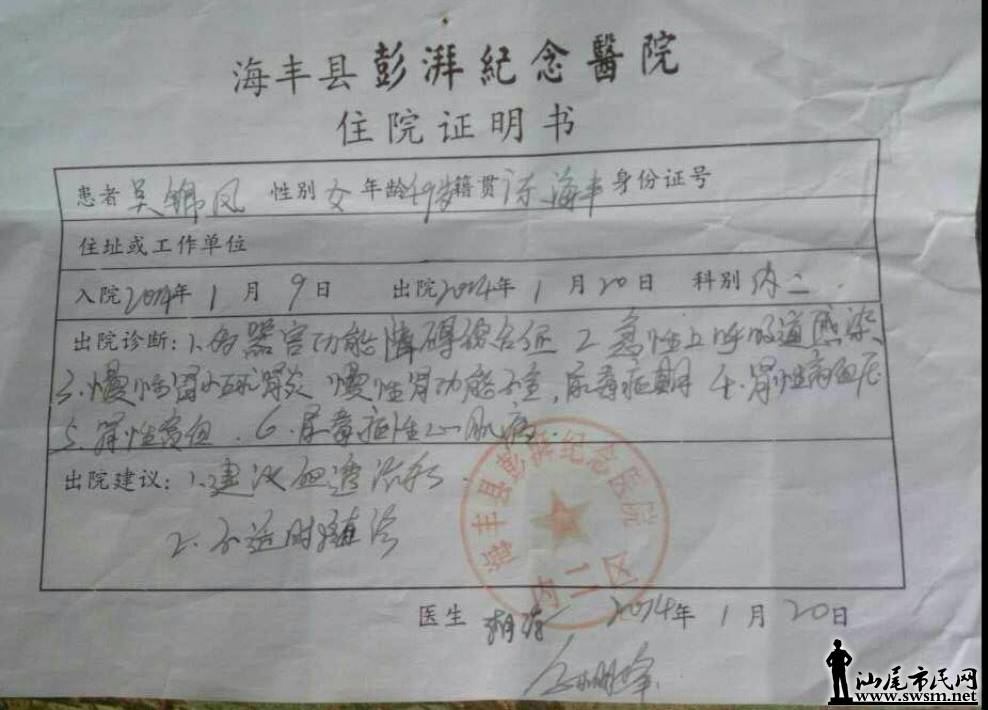 海丰县彭湃纪念醫院
住院证明书
患者 吴锦凤 性别 女 年龄 49岁 籍贯 海丰 身份证号
住址或工作单位
入院2014年1月9日 出院2014年1月20日 科别 内二
出院诊断：1.多器官功能障碍综合征 2.急性上呼吸道感染
3.慢性肾小球肾炎 慢性肾功能不全，尿毒症期 4.肾性高血压
5.肾性贫血. 6.尿毒症性心肌病.
出院建议：1.建议血透治疗
2.不适时随诊
海丰县彭湃纪念医院
内二区
医生 2014年1月20日
汕尾市民网
www.swsm.net